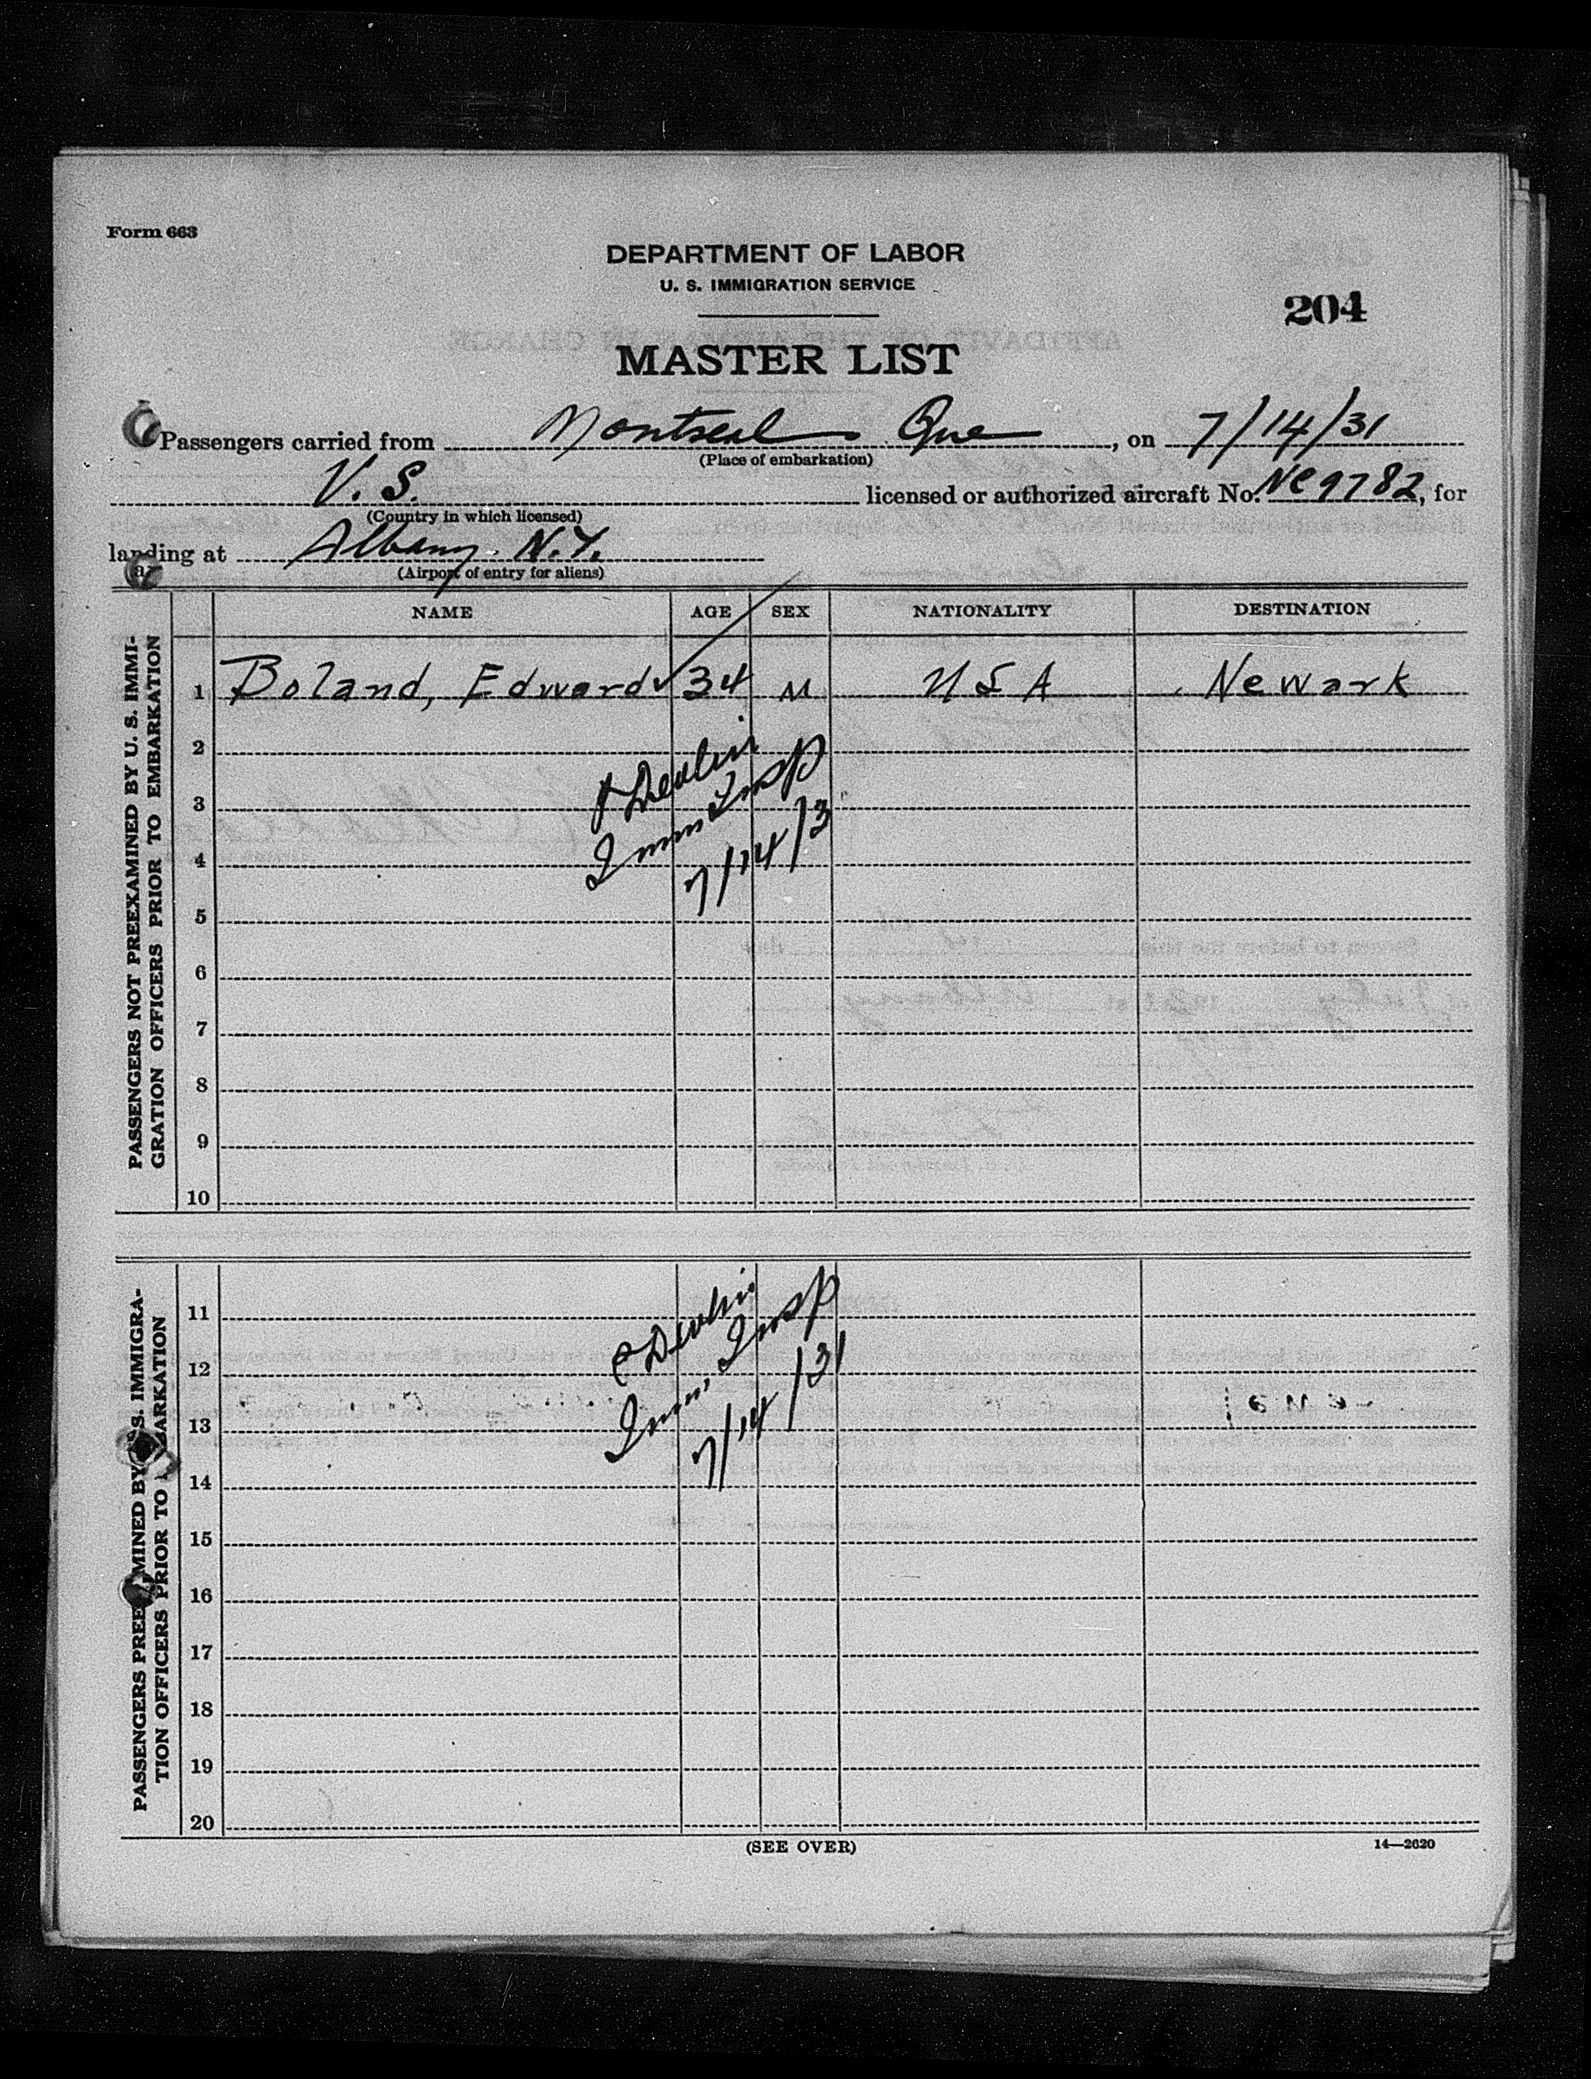 Form 663
DEPARTMENT OF LABOR
U. S. IMMIGRATION SERVICE
204
MASTER LIST
Passengers carried from Montreal Que, on 7/14/31
(Place of embarkation)
U. S. licensed or authorized aircraft No. NC9782, for
(Country in which licensed)
landing at Albany N.Y.
(Airport of entry for aliens)
NAME AGE SEX NATIONALITY DESTINATION
PASSENGERS NOT PREEXAMINED BY U. S. IMMI-
GRATION OFFICERS PRIOR TO EMBARKATION
1 Boland, Edward 34 M USA Newark
2
Devlin
3
Imm Insp
4
7/14/3
5
6
7
8
9
10
PASSENGERS PREE MINED BY S. IMMIGRA-
TION OFFICERS PRIOR TO ARKATION
11
Devlin
12
Imm. Insp
13
7/14/31
14
15
16
17
18
19
20
(SEE OVER)
14—2620